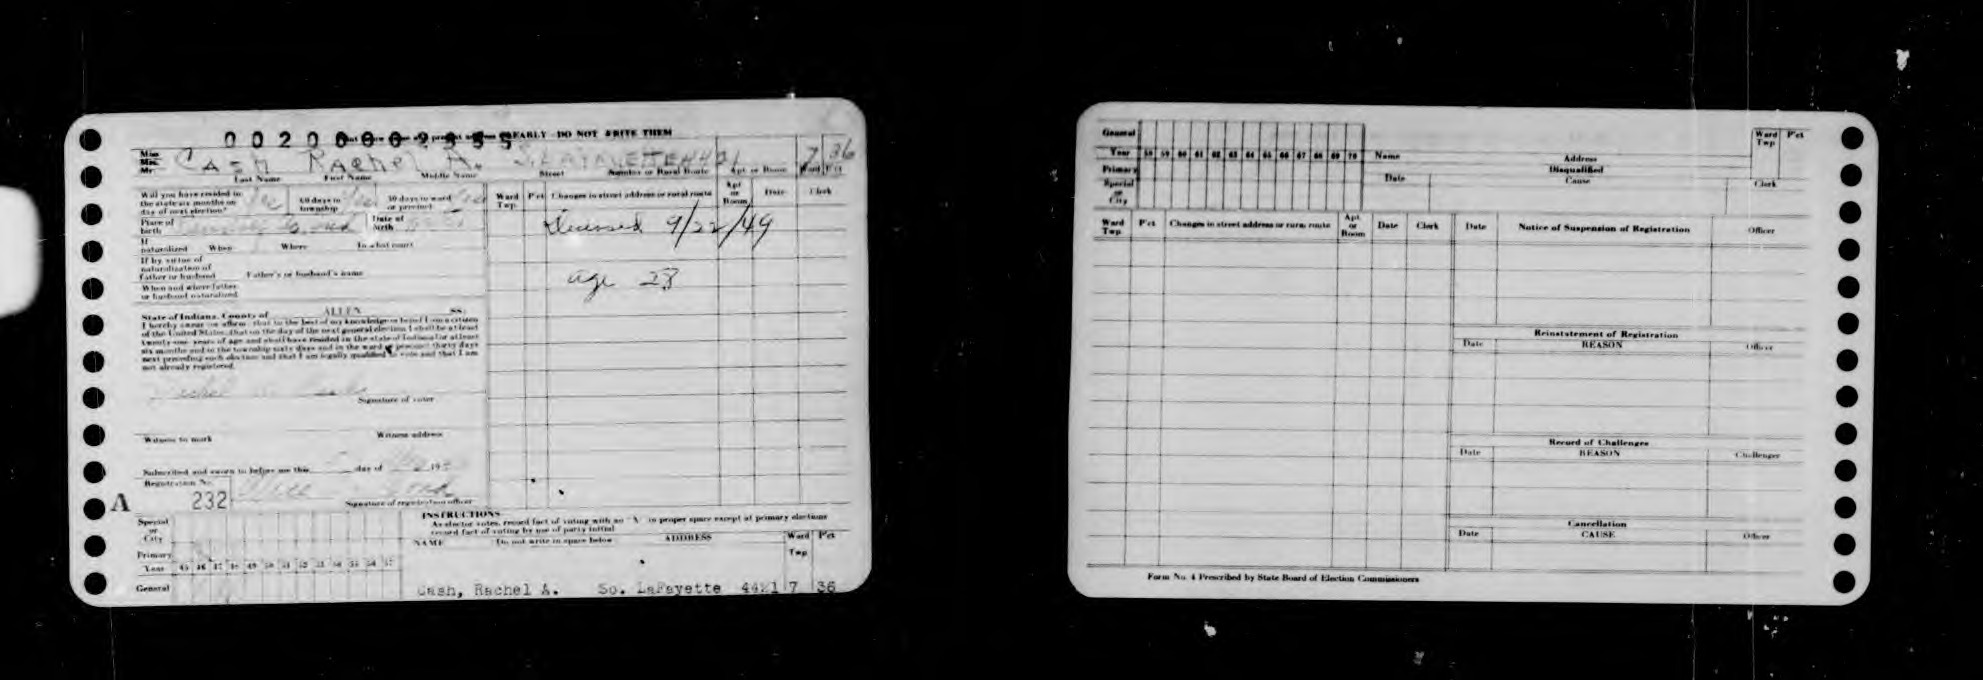 00200002955
EARLY - DO NOT WRITE THEM
Miss
Mrs.
Mr.
Cash Rachel A. S. LAFAYETTE 4421 7 36
Last Name First Name Middle Name Street Number or Rural Route Apt or Room Ward Pct
Will you have resided in
the state six months on
day of next election? Yes
60 days in
township Yes
30 days in ward
or precinct Yes
Place of
birth
Date of
birth
If
naturalized When Where In what court
If by virtue of
naturalization of
father or husband Father's or husband's name
When and where father
or husband naturalized
State of Indiana, County of ALLEN SS:
I hereby swear or affirm that to the best of my knowledge or belief I am a citizen
of the United States, that on the day of the next general election I shall be at least
twenty-one years of age and shall have resided in the state of Indiana for at least
six months and in the township sixty days and in the ward or precinct thirty days
next preceding such election and that I am legally qualified to vote and that I am
not already registered.
Signature of voter
Witness to mark Witness address
Subscribed and sworn to before me this day of 19
Registration No.
A 232
Signature of registration officer
Ward
Twp.
P'ct Changes in street address or rural route
Apt
or
Room
Date Clerk
Deceased 9/22/49
age 28
INSTRUCTIONS
As elector votes, record fact of voting with an "X" in proper space except at primary elections
record fact of voting by use of party initial
Special
or
City
Primary
Year 45 46 47 48 49 50 51 52 53 54 55 56 57
General
NAME Do not write in space below ADDRESS Ward
Twp
P'ct
Cash, Rachel A. So. LaFayette 4421 7 36
General
Year 58 59 60 61 62 63 64 65 66 67 68 69 70
Primary
Special
or
City
Name Address
Ward
Twp
P'ct
Disqualified
Date Cause Clerk
Ward
Twp.
P'ct Changes in street address or rural route
Apt.
or
Room
Date Clerk
Date Notice of Suspension of Registration Officer
Reinstatement of Registration
Date REASON Officer
Record of Challenges
Date REASON Challenger
Cancellation
Date CAUSE Officer
Form No. 4 Prescribed by State Board of Election Commissioners